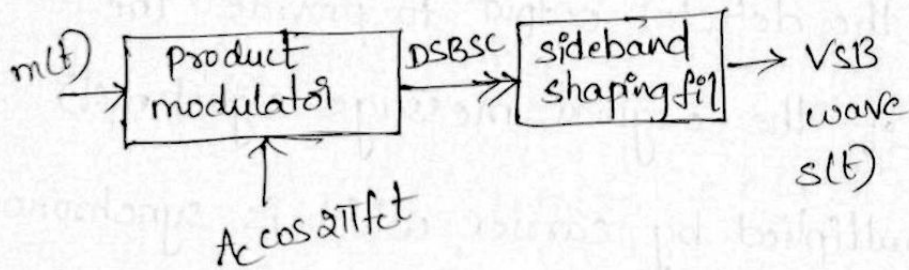 m(t)
product
modulator
DSBSC
sideband
shaping fil
VSB
wave
s(t)
Ac cos 2πfct